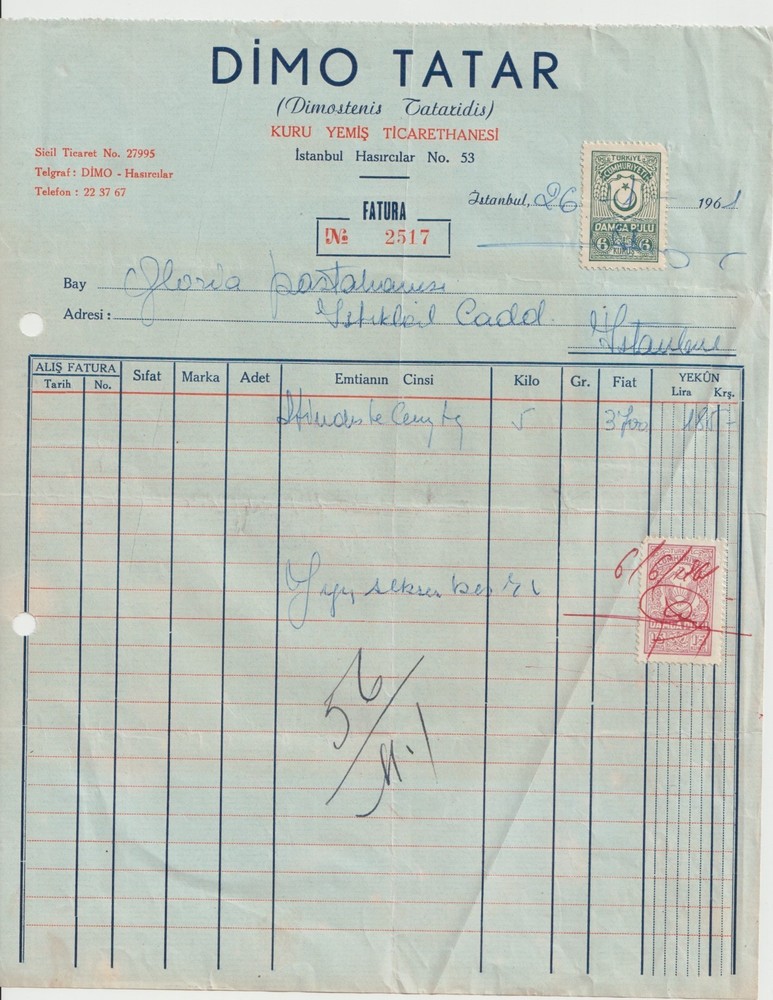 DİMO TATAR
(Dimostenis Tataridis)
KURU YEMİŞ TİCARETHANESİ
İstanbul Hasırcılar No. 53
Sicil Ticaret No. 27995
Telgraf : DİMO - Hasırcılar
Telefon : 22 37 67
İstanbul, 26 1961
TÜRKİYE
CUMHURİYETİ
DAMGA PULU
6 KURUŞ 6
FATURA
№ 2517
Bay Gloria pastahanesi
Adresi : İstiklâl Cadd.
İstanbul
ALIŞ FATURA Sıfat Marka Adet Emtianın Cinsi Kilo Gr. Fiat YEKÛN
Tarih No. Lira Krş.
5 3700 185-
DAMGA
56